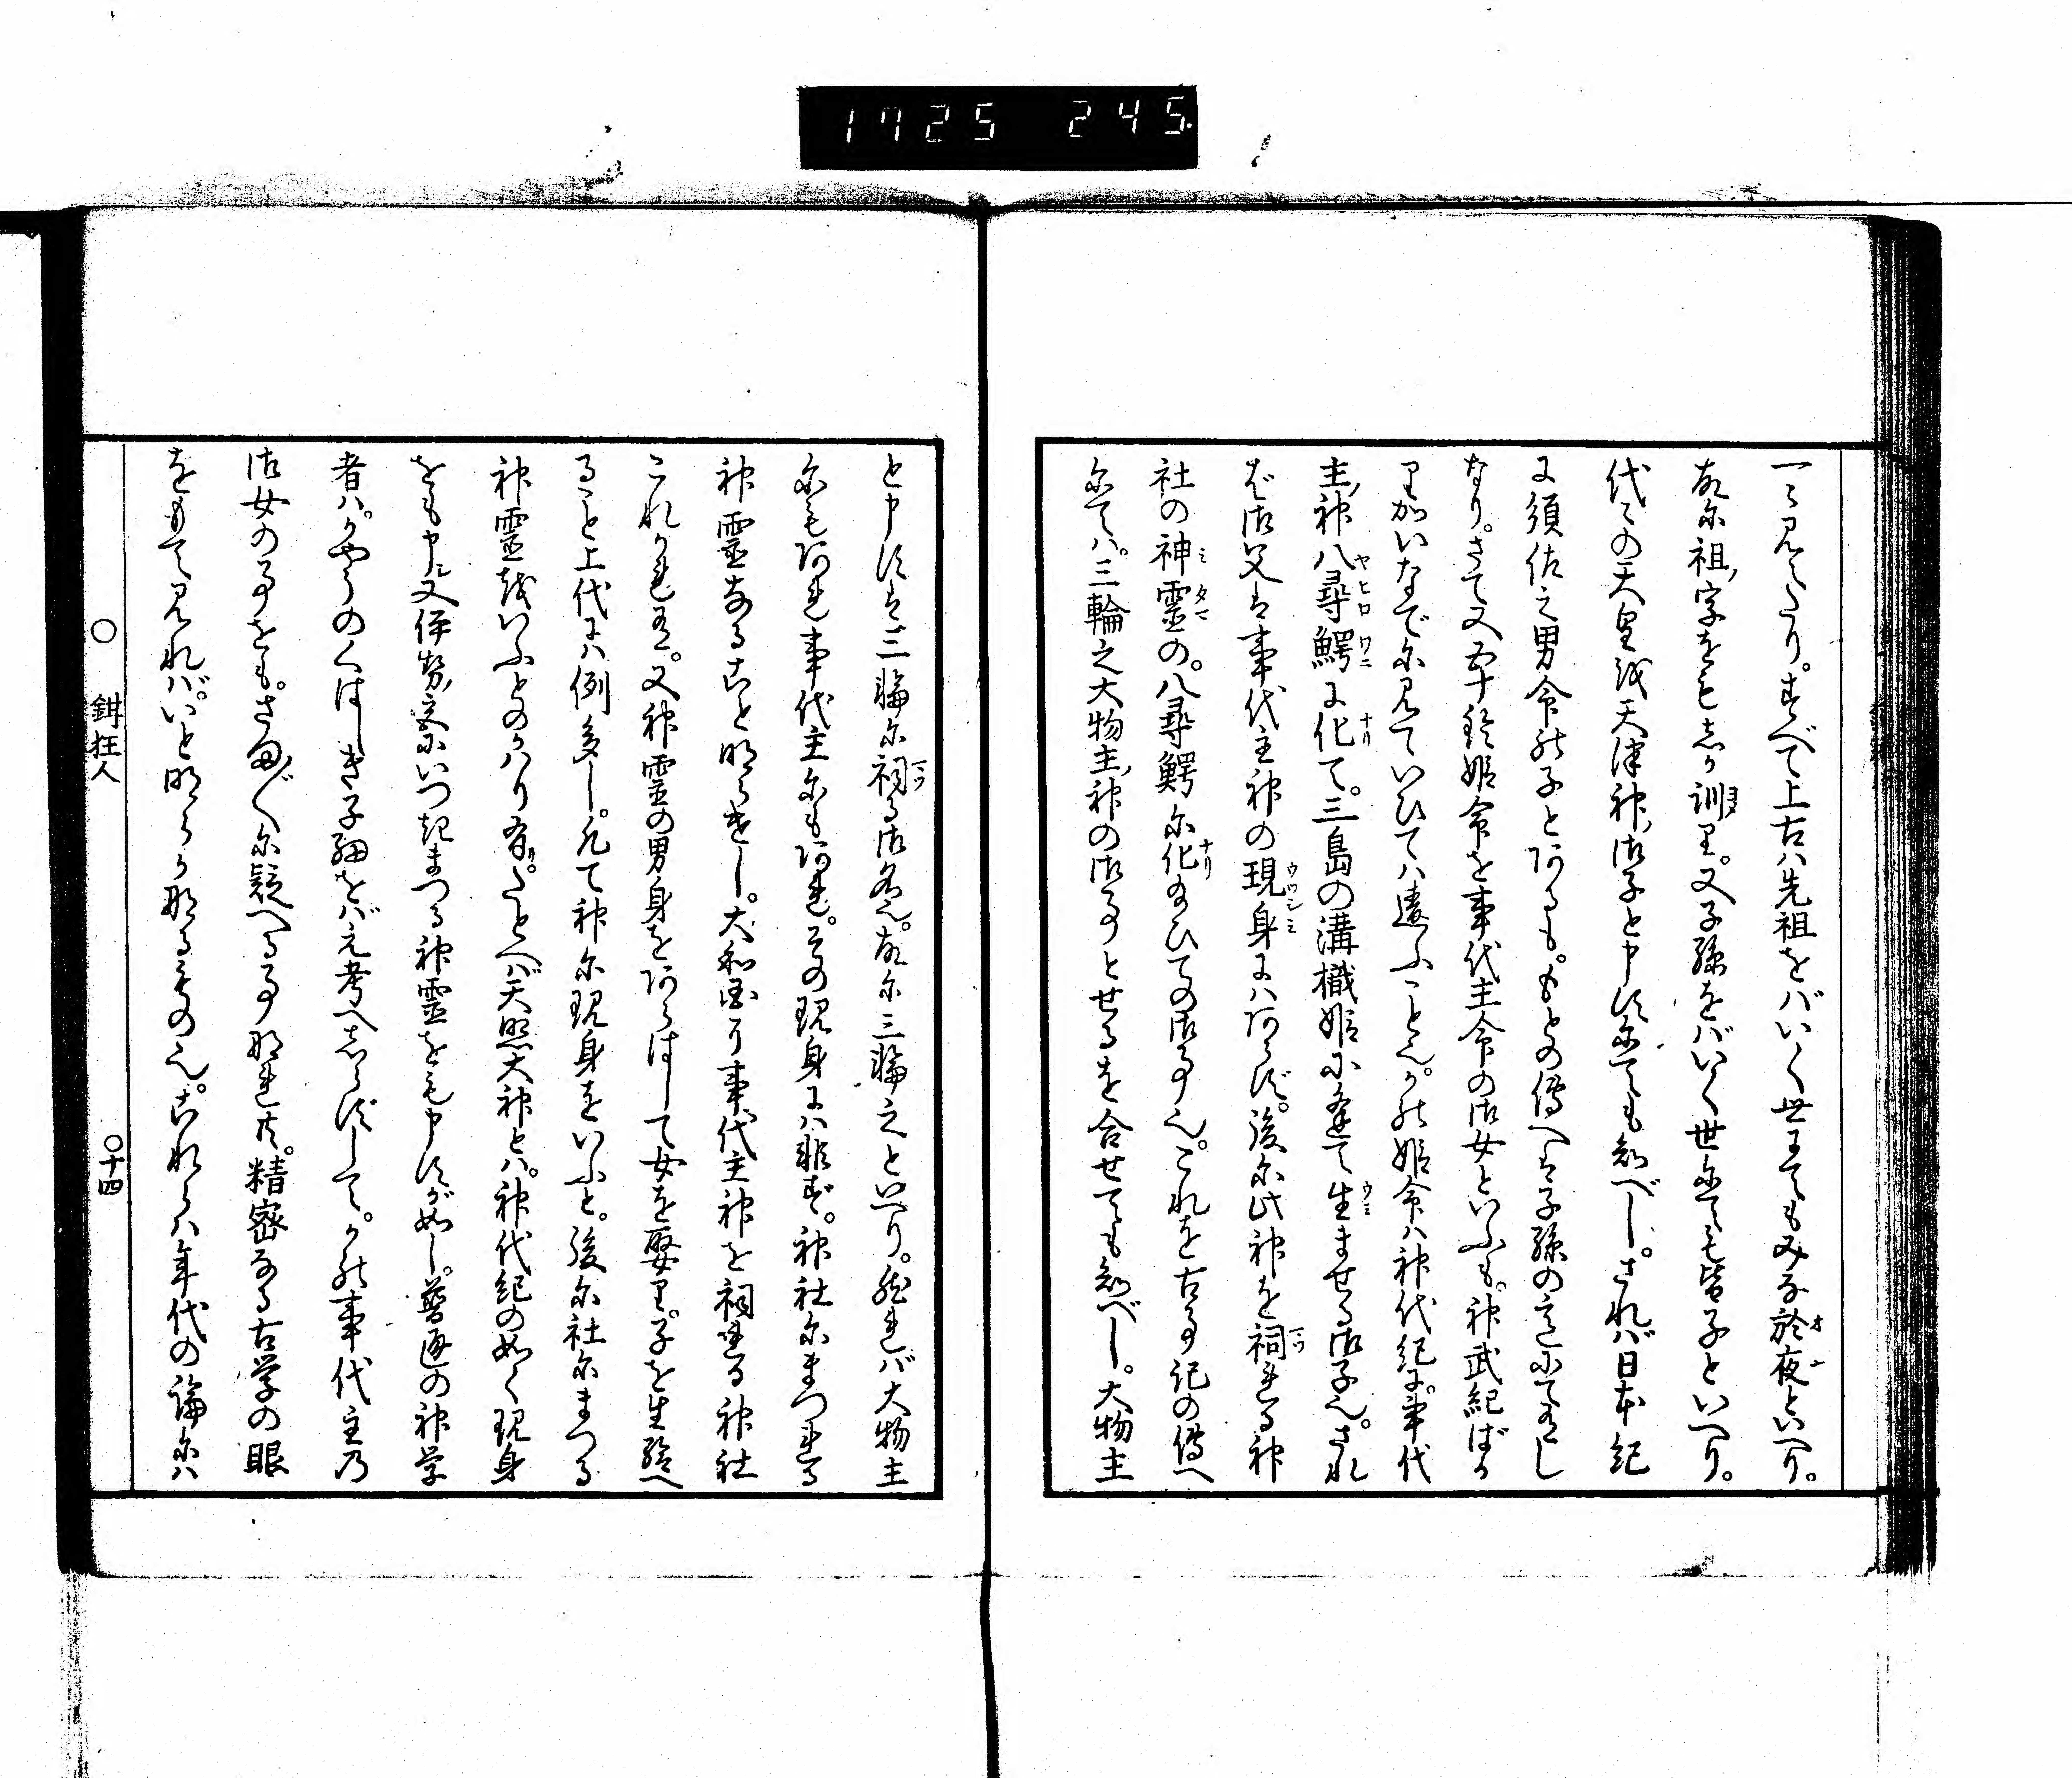 1725 245.
一ニ見えたり。すべて上古ハ先祖をバいく世まてもみな於夜といへり。
故に祖ノ字をも志か訓り。又子孫をバいく世にても皆子といへり。
代々の天皇を天津神ノ御子と申すにても知べし。されば日本紀
に須佐之男命の子とあるも。もとの傳へは子孫の意にて有し
なり。さて又五十鈴姫命を事代主命の御女といふも。神武紀ばか
りかいなでに見ていひてハ違ふこと也。かの姫命ハ神代紀に。事代
主ノ神八尋鰐に化て。三島の溝樴姫に逢て生ませる御子也。され
ば御父は事代主神の現身にハあらず。後に此神を祠れる神
社の神靈の。八尋鰐に化給ひての御事也。これを古事記の傳へ
にてハ。三輪之大物主ノ神の御事とせるを合せても知べし。大物主
と申すは三輪に祠る御名也。故に三輪之といへり。然れバ大物主
にもあれ事代主にもあれ。その現身にハ非ず。神社にまつれる
神靈なること明らけし。大和国に事代主神を祠れる神社
これかれ有。又神靈の男身をあらはして女を娶り。子を生給へ
ること上代にハ例多し。凡て神に現身をいふと。後に社にまつる
神靈をいふとのかハり有。たとへバ天照大神とハ。神代紀の如く現身
をも申シ又伊勢ノ宮にいつきまつる神靈をも申すが如し。普通の神学
者ハ。かやうのくはしき子細をバえ考へしらずして。かの事代主の
御女の事をも。さまざまに疑へる事なれ共。精密なる古学の眼
をもて見れバ。いと明らかなるもの也。これらハ年代の論にハ
○ 鉗狂人
○十四